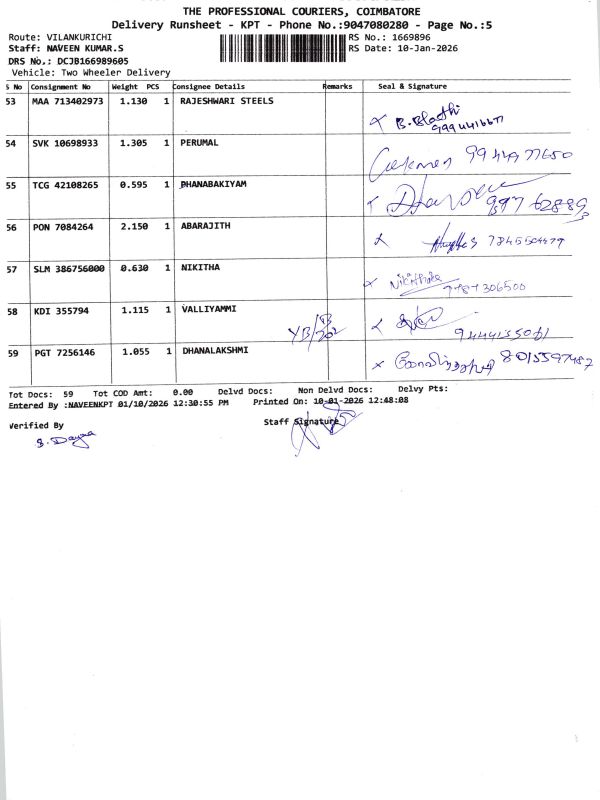 THE PROFESSIONAL COURIERS, COIMBATORE
Delivery Runsheet - KPT - Phone No.:9047080280 - Page No.:5
Route: VILANKURICHI RS No.: 1669896
Staff: NAVEEN KUMAR.S RS Date: 10-Jan-2026
DRS No.: DCJB166989605
Vehicle: Two Wheeler Delivery
S No Consignment No Weight PCS Consignee Details Remarks Seal & Signature
53 MAA 713402973 1.130 1 RAJESHWARI STEELS
54 SVK 10698933 1.305 1 PERUMAL
55 TCG 42108265 0.595 1 DHANABAKIYAM
56 PON 7084264 2.150 1 ABARAJITH 7845504479
57 SLM 386756000 0.630 1 NIKITHA
58 KDI 355794 1.115 1 VALLIYAMMI
59 PGT 7256146 1.055 1 DHANALAKSHMI 8015597487
Tot Docs: 59 Tot COD Amt: 0.00 Delvd Docs: Non Delvd Docs: Delvy Pts:
Entered By :NAVEENKPT 01/10/2026 12:30:55 PM Printed On: 10-01-2026 12:48:08
Verified By Staff Signature